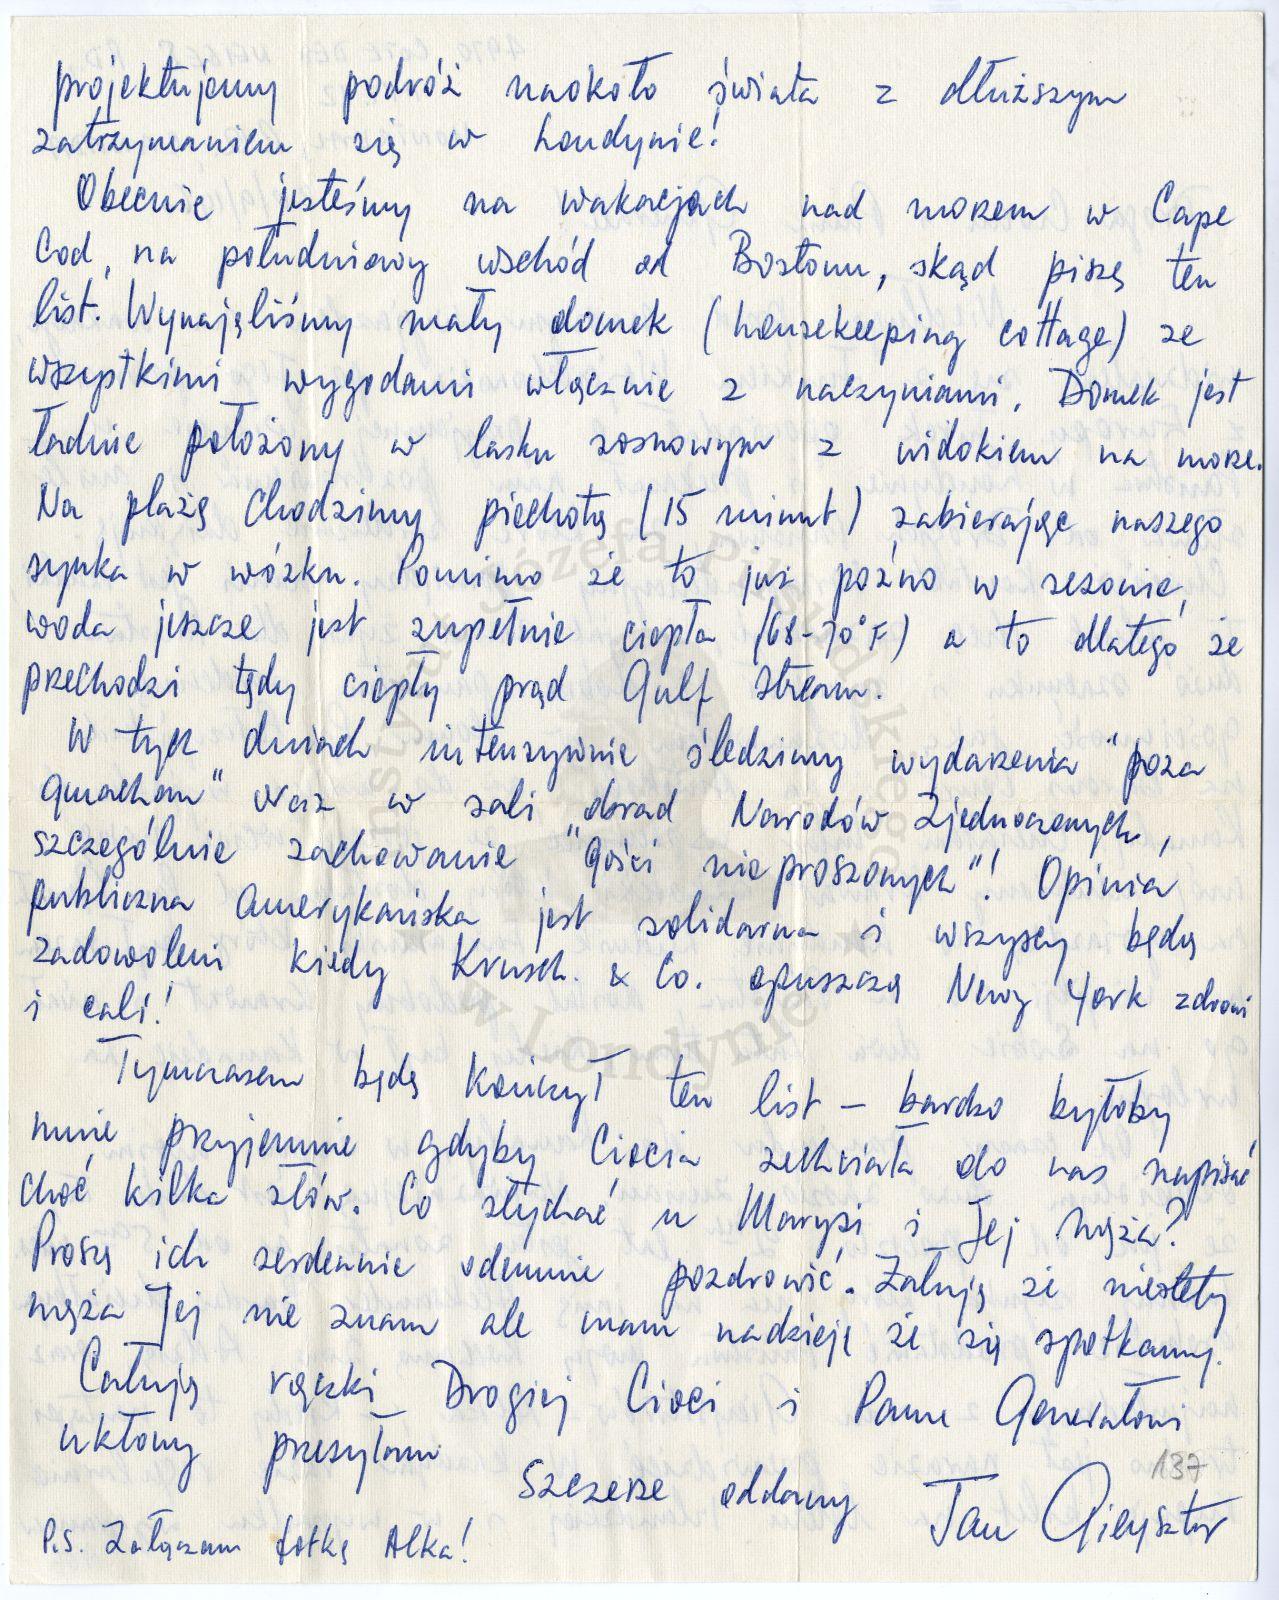 projektujemy podróż naokoło świata z dłuższym
zatrzymaniem się w Londynie!
Obecnie jesteśmy na wakacjach nad morzem w Cape
Cod, na południowy wschód od Bostonu, skąd piszę ten
list. Wynajęliśmy mały domek (housekeeping cottage) ze
wszystkimi wygodami włącznie z naczyniami. Domek jest
ładnie położony w lasku sosnowym z widokiem na morze.
Na plażę chodzimy piechotą (15 minut) zabierając naszego
synka w wózku. Pomimo że to już późno w sezonie,
woda jeszcze jest zupełnie ciepła (68-70°F) a to dlatego że
przechodzi tędy ciepły prąd Gulf Stream.
W tych dniach intensywnie śledzimy wydarzenia "poza
gmachem" oraz w sali obrad Narodów Zjednoczonych,
szczególnie zachowanie "gości nieproszonych"! Opinia
publiczna Amerykańska jest solidarna i wszyscy będą
zadowoleni kiedy Krusch. & Co. opuszczą Nowy York zdrowi
i cali!
Tymczasem będę kończył ten list – bardzo byłoby
mnie przyjemnie gdyby Ciocia zechciała do nas napisać
choć kilka słów. Co słychać u Marysi i Jej męża?
Proszę ich serdecznie odemnie pozdrowić. Żałuję że niestety
męża Jej nie znam ale mam nadzieję że się spotkamy.
Całuję rączki Drogiej Cioci i Panu Generałowi
ukłony przesyłam
Szczerze oddany Jan Gieysztor
137
P.S. Załączam fotkę Alka!
Instytut Józefa Piłsudskiego
w Londynie